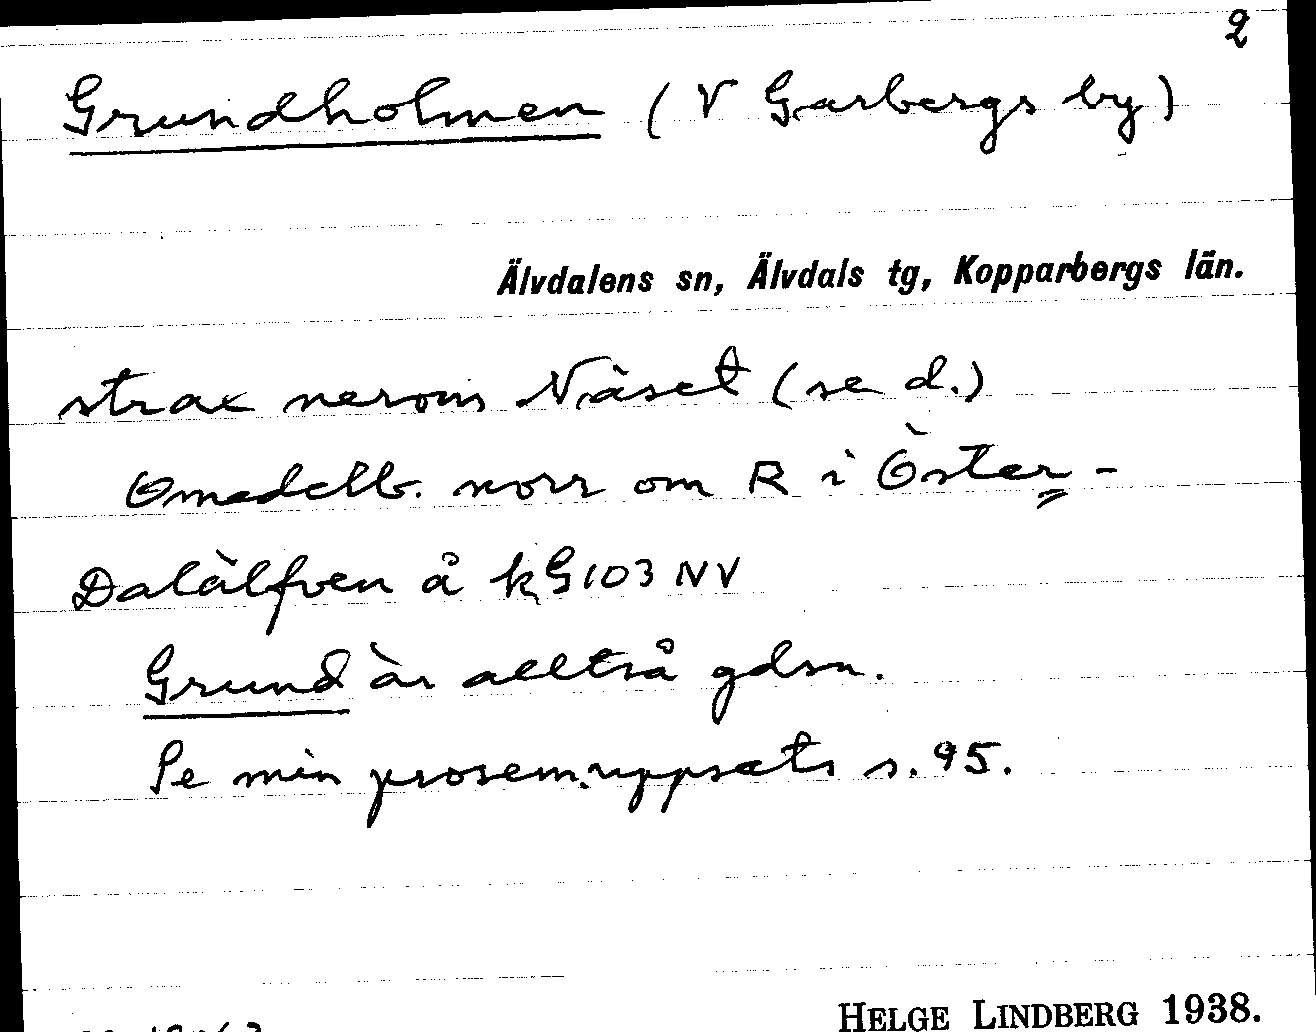 2
Grundholmen (V Garbergs by)
Älvdalens sn, Älvdals tg, Kopparbergs län.
strax nerom Näset (se d.)
Omedelb. norr om R i Öster-
Dalälfven å kG103 NV
Grund är alltså gdsn.
Se min prosem.uppsats s. 95.
HELGE LINDBERG 1938.